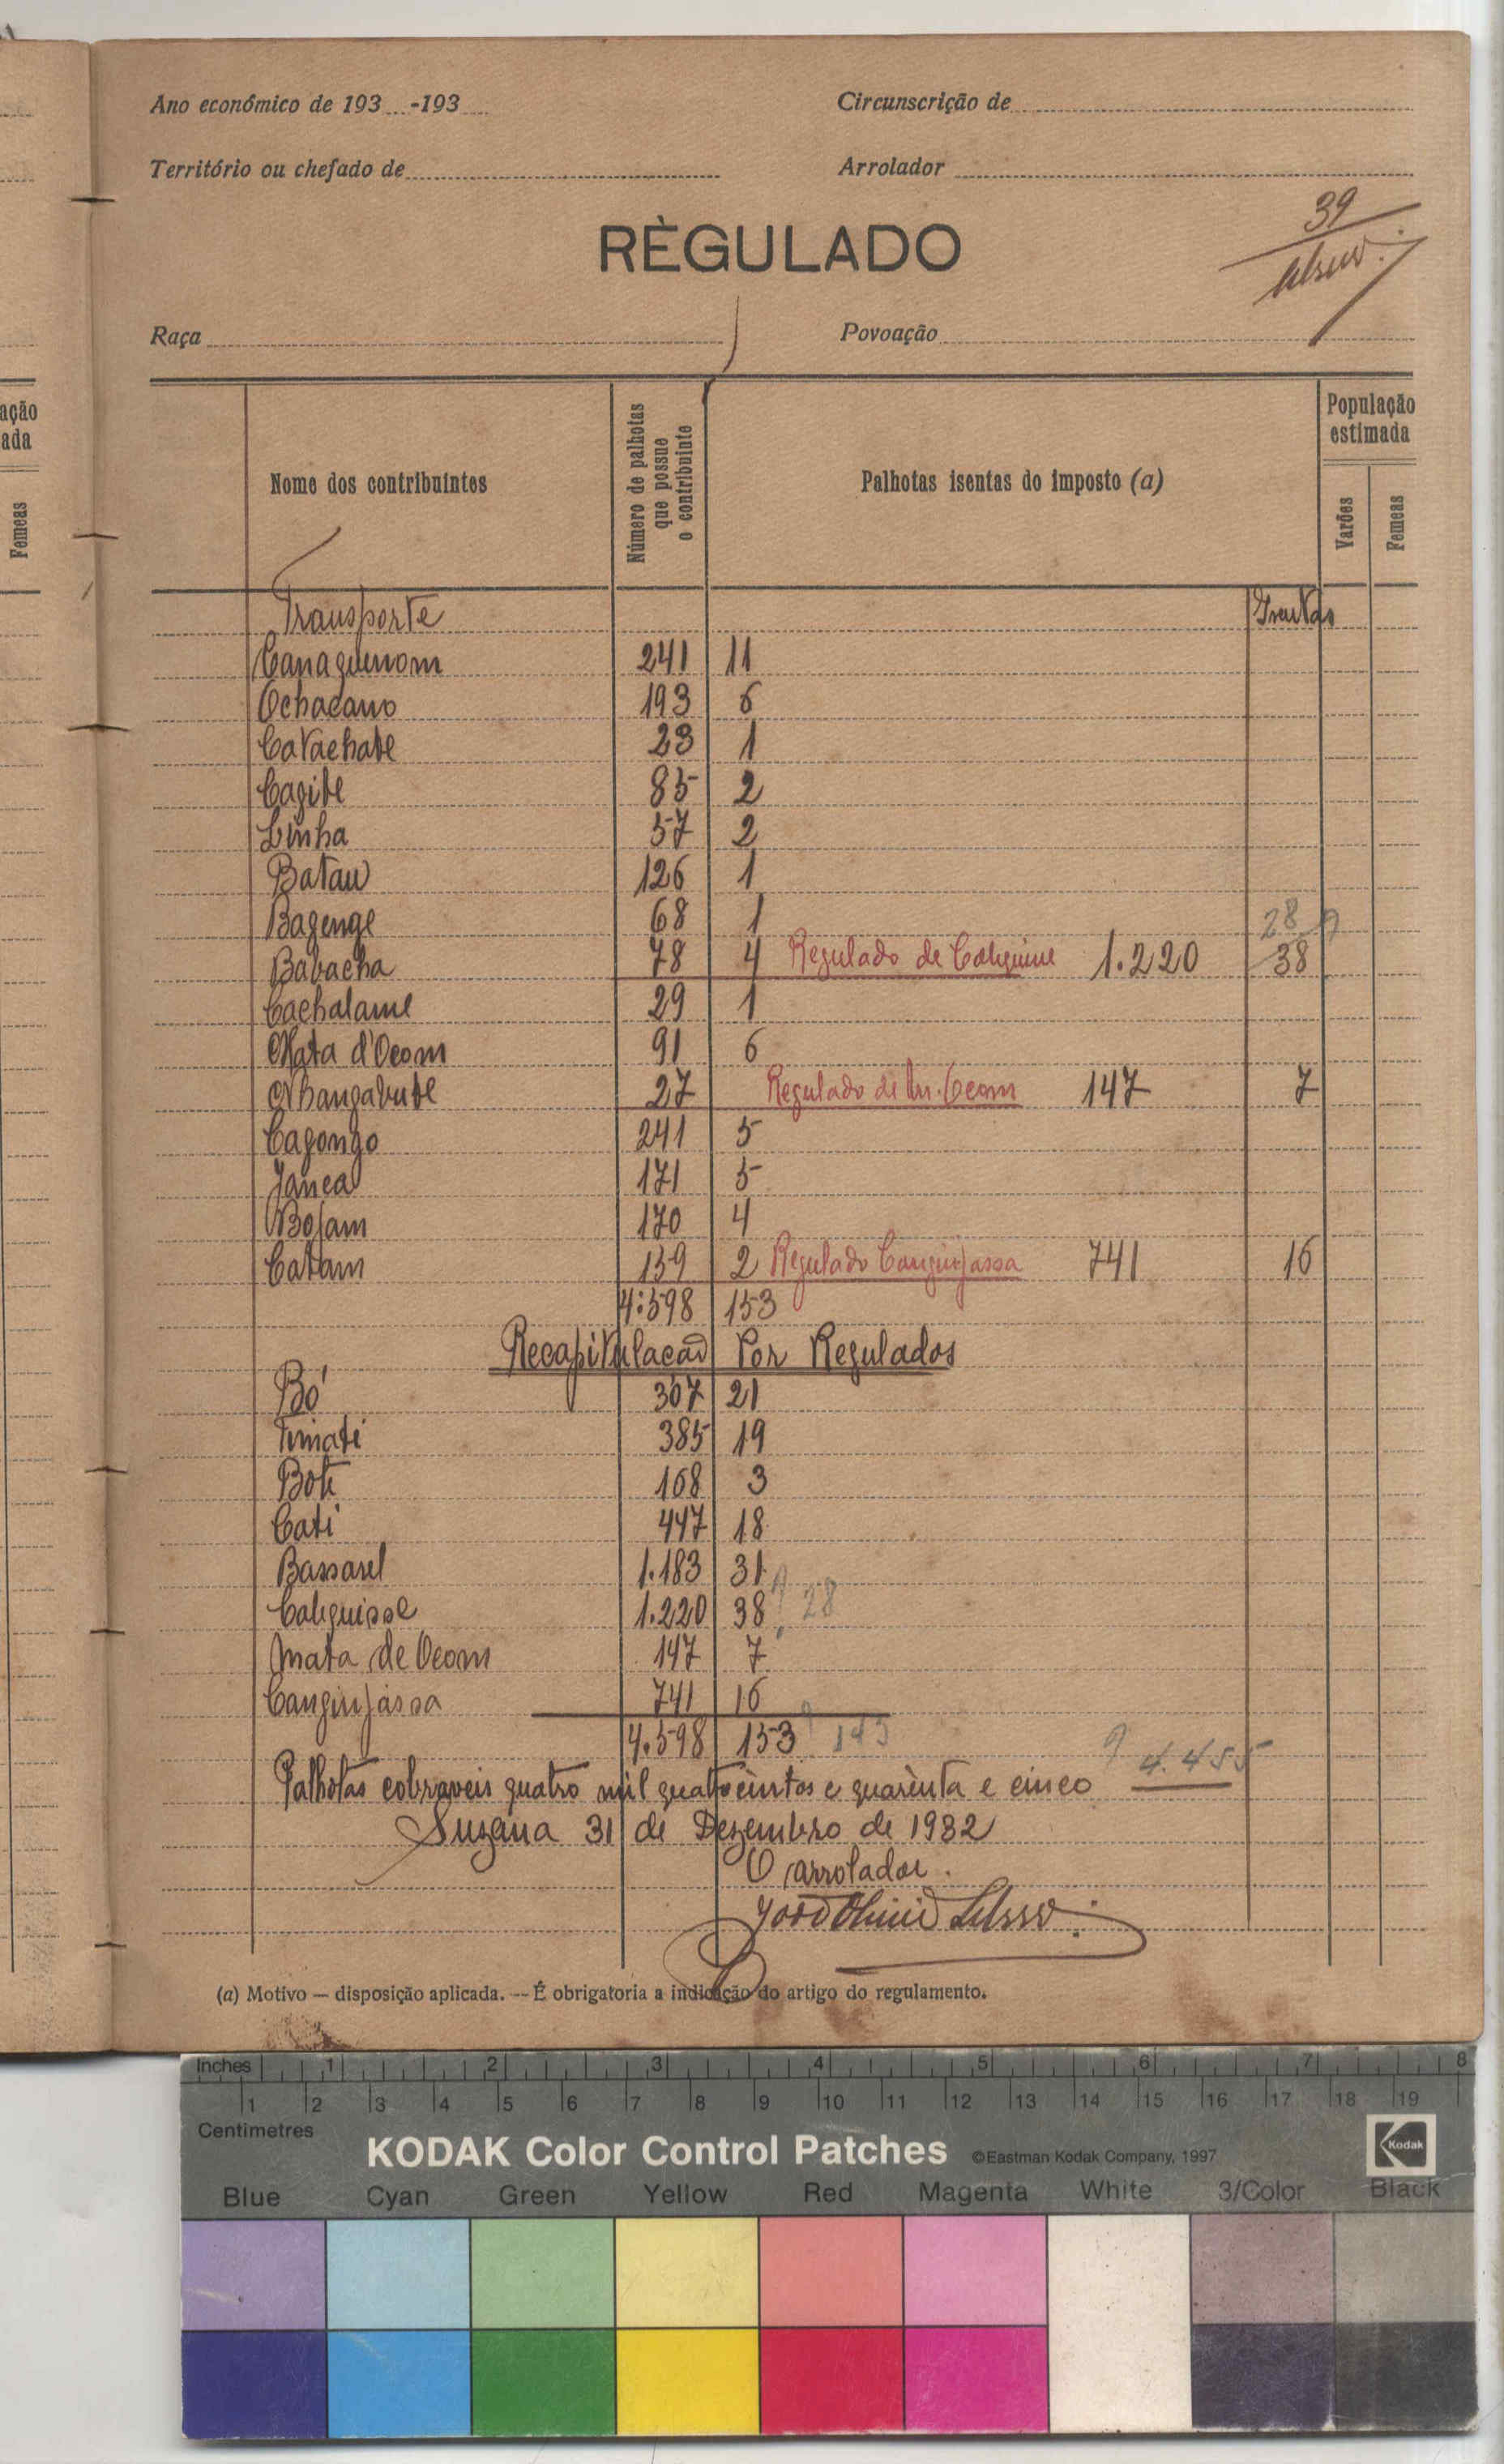 ação
ada
Femeas
Ano económico de 193 -193
Circunscrição de
Território ou chefado de
Arrolador
39
RÈGULADO
Raça
Povoação
Nome dos contribuintes
Número de palhotas que possue o contribuinte
Palhotas isentas do imposto (a)
População estimada
Varões
Femeas
Transporte
241 11
193 6
23 1
Cagite 85 2
Linha 57 2
Batau 126 1
28
Bagenge 68 1
Babacha 78 4 Regulado de 1.220 38
Cachalame 29 1
Mata d'Ocom 91 6
27 Regulado de M. Ocom 147 7
Cagongo 241 5
Janca 171 5
Bojam 170 4
Catam 159 2 Regulado Canguijassa 741 16
4:598 153
Recapitulacão Por Regulados
Bó 307 21
Timati 385 19
Bote 168 3
Cati 447 18
Bassarel 1.183 31
1.220 38 28
Mata de Ocom 147 7
Canguijassa 741 16
4.598 153 143
Palhotas cobraveis quatro mil quatrocintos e quarènta e cinco 4.455
Suzana 31 de Dezembro de 1932
O arrolador.
(a) Motivo — disposição aplicada. — É obrigatoria a indicação do artigo do regulamento.
Inches 1 2 3 4 5 6 7 8
1 2 3 4 5 6 7 8 9 10 11 12 13 14 15 16 17 18 19
Centimetres
KODAK Color Control Patches ©Eastman Kodak Company, 1997
Kodak
Blue Cyan Green Yellow Red Magenta White 3/Color Black